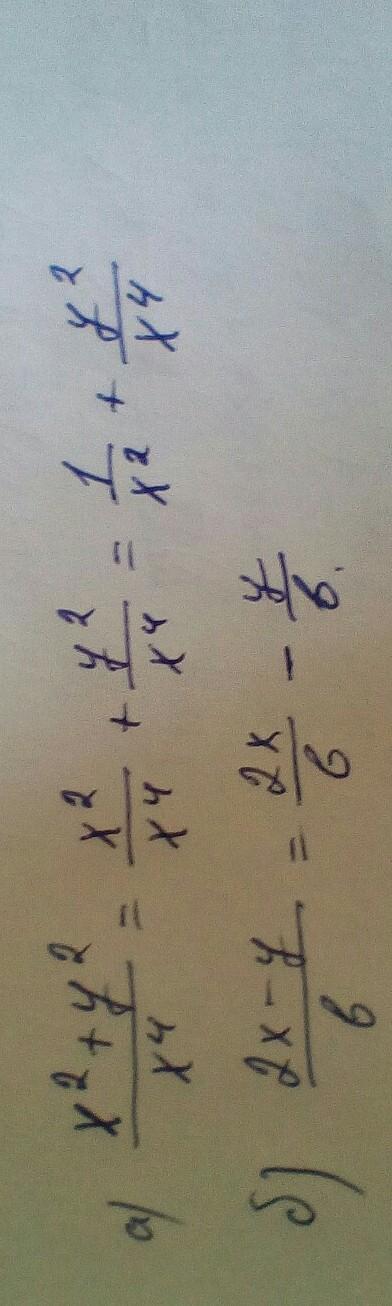 а) (x² + y²)/x⁴ = x²/x⁴ + y²/x⁴ = 1/x² + y²/x⁴
б) (2x - y)/b = 2x/b - y/b.